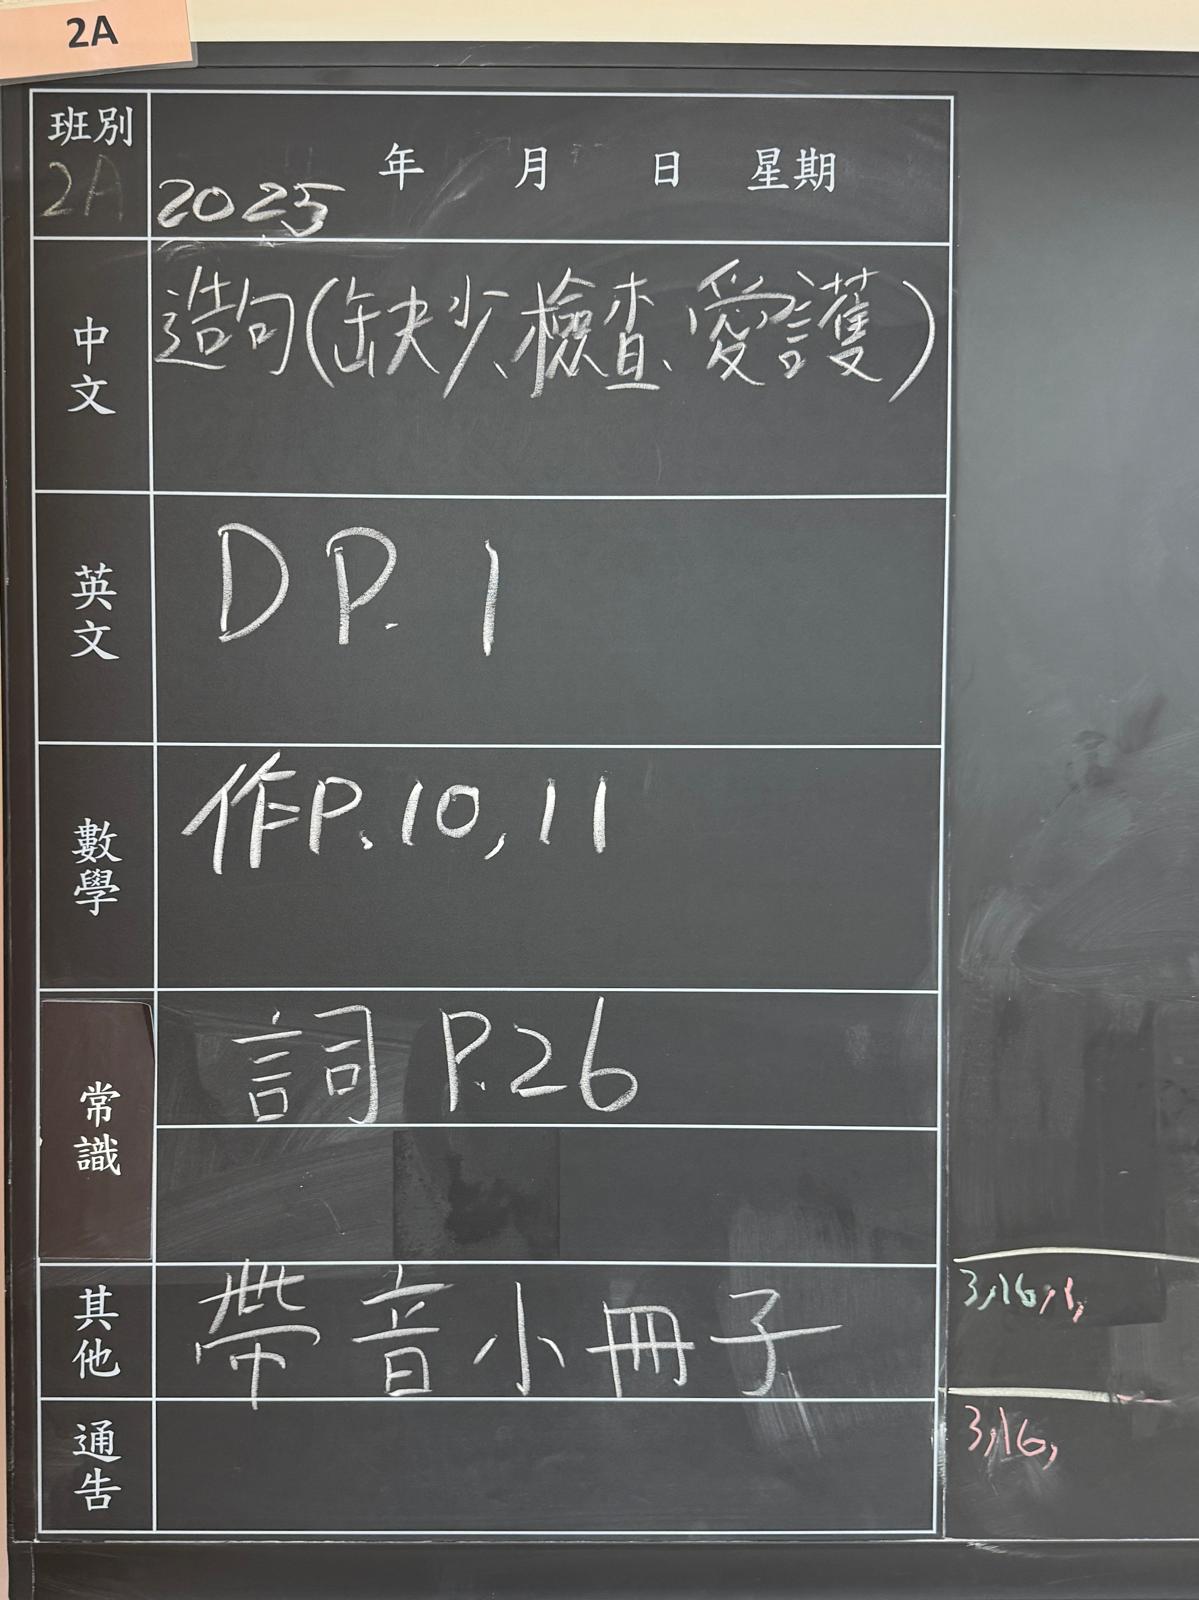 2A
班別
2A
年 月 日 星期
2025
中文
造句(缺少、檢查、愛護)
英文
D P. 1
數學
作P.10, 11
常識
詞 P.26
其他
帶音小冊子
通告
3,16,1,
3,16,